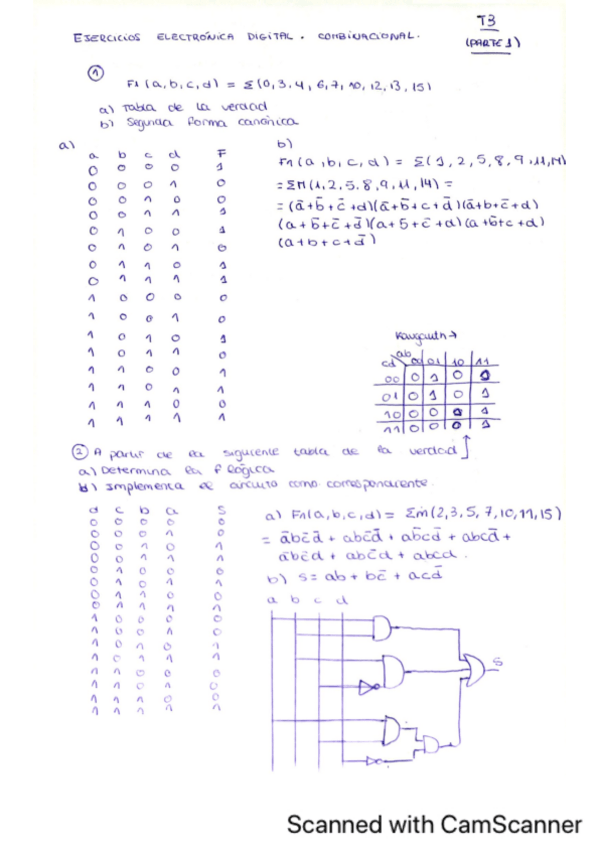 T3
(PARTE 1)
EJERCICIOS ELECTRÓNICA DIGITAL. COMBINACIONAL.
①
F1 (a,b,c,d) = Σ(0,3,4,6,7,10,12,13,15)
a) Tabla de la verdad
b) Segunda forma canónica
a)
a b c d F
0 0 0 0 1
0 0 0 1 0
0 0 1 0 0
0 0 1 1 1
0 1 0 0 1
0 1 0 1 0
0 1 1 0 1
0 1 1 1 1
1 0 0 0 0
1 0 0 1 0
1 0 1 0 1
1 0 1 1 0
1 1 0 0 1
1 1 0 1 1
1 1 1 0 0
1 1 1 1 1
b)
F1(a,b,c,d) = Σ(1,2,5,8,9,11,14)
= ΣM(1,2,5,8,9,11,14) =
= (ā+b̄+c̄+d)(ā+b̄+c+d̄)(ā+b+c̄+d)
(a+b̄+c̄+d̄)(a+b̄+c̄+d)(a+b̄+c+d)
(a+b+c+d̄)
Karnaugh→
ab
cd 00 01 10 11
00 0 1 0 1
01 0 1 0 1
10 0 0 1
11 0 0 0 1
② A partir de la siguiente tabla de la verdad
a) Determina la f lógica
b) Implementa el circuito como correspondiente.
d c b a S
0 0 0 0 0
0 0 0 1 0
0 0 1 0 1
0 0 1 1 1
0 1 0 0 0
0 1 0 1 1
0 1 1 0 0
0 1 1 1 1
1 0 0 0 0
1 0 0 1 0
1 0 1 0 1
1 0 1 1 1
1 1 0 0 0
1 1 0 1 0
1 1 1 0 0
1 1 1 1 1
a) F1(a,b,c,d) = Σm(2,3,5,7,10,11,15)
= ābc̄d̄ + abc̄d̄ + ab̄cd̄ + abcd̄ +
ābc̄d + abc̄d + abcd.
b) S= ab + bc̄ + acd̄
a b c d
S
Scanned with CamScanner